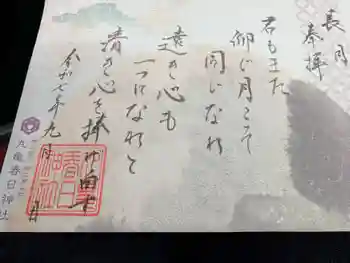 長月
奉拝
君もまた
仰ぐ月こそ
同じなれ
遠き心も
一つになれと
清き心を捧げ
令和七年九月
月
春日
神社
丸亀春日神社